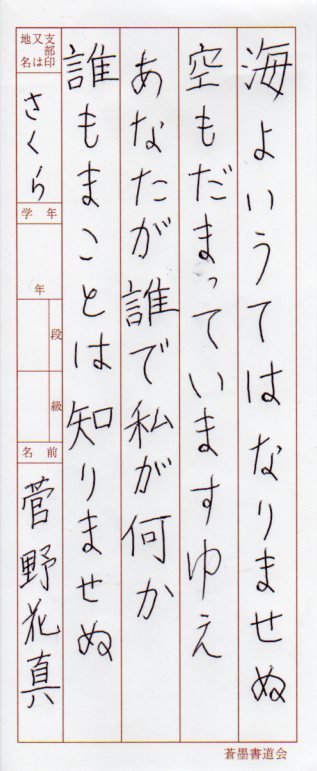 海よいうてはなりませぬ
空もだまっていますゆえ
あなたが誰で私が何か
誰もまことは知りませぬ
支部印又は地名
さくら
学年
年
段
級
名前
菅野花真
蒼墨書道会